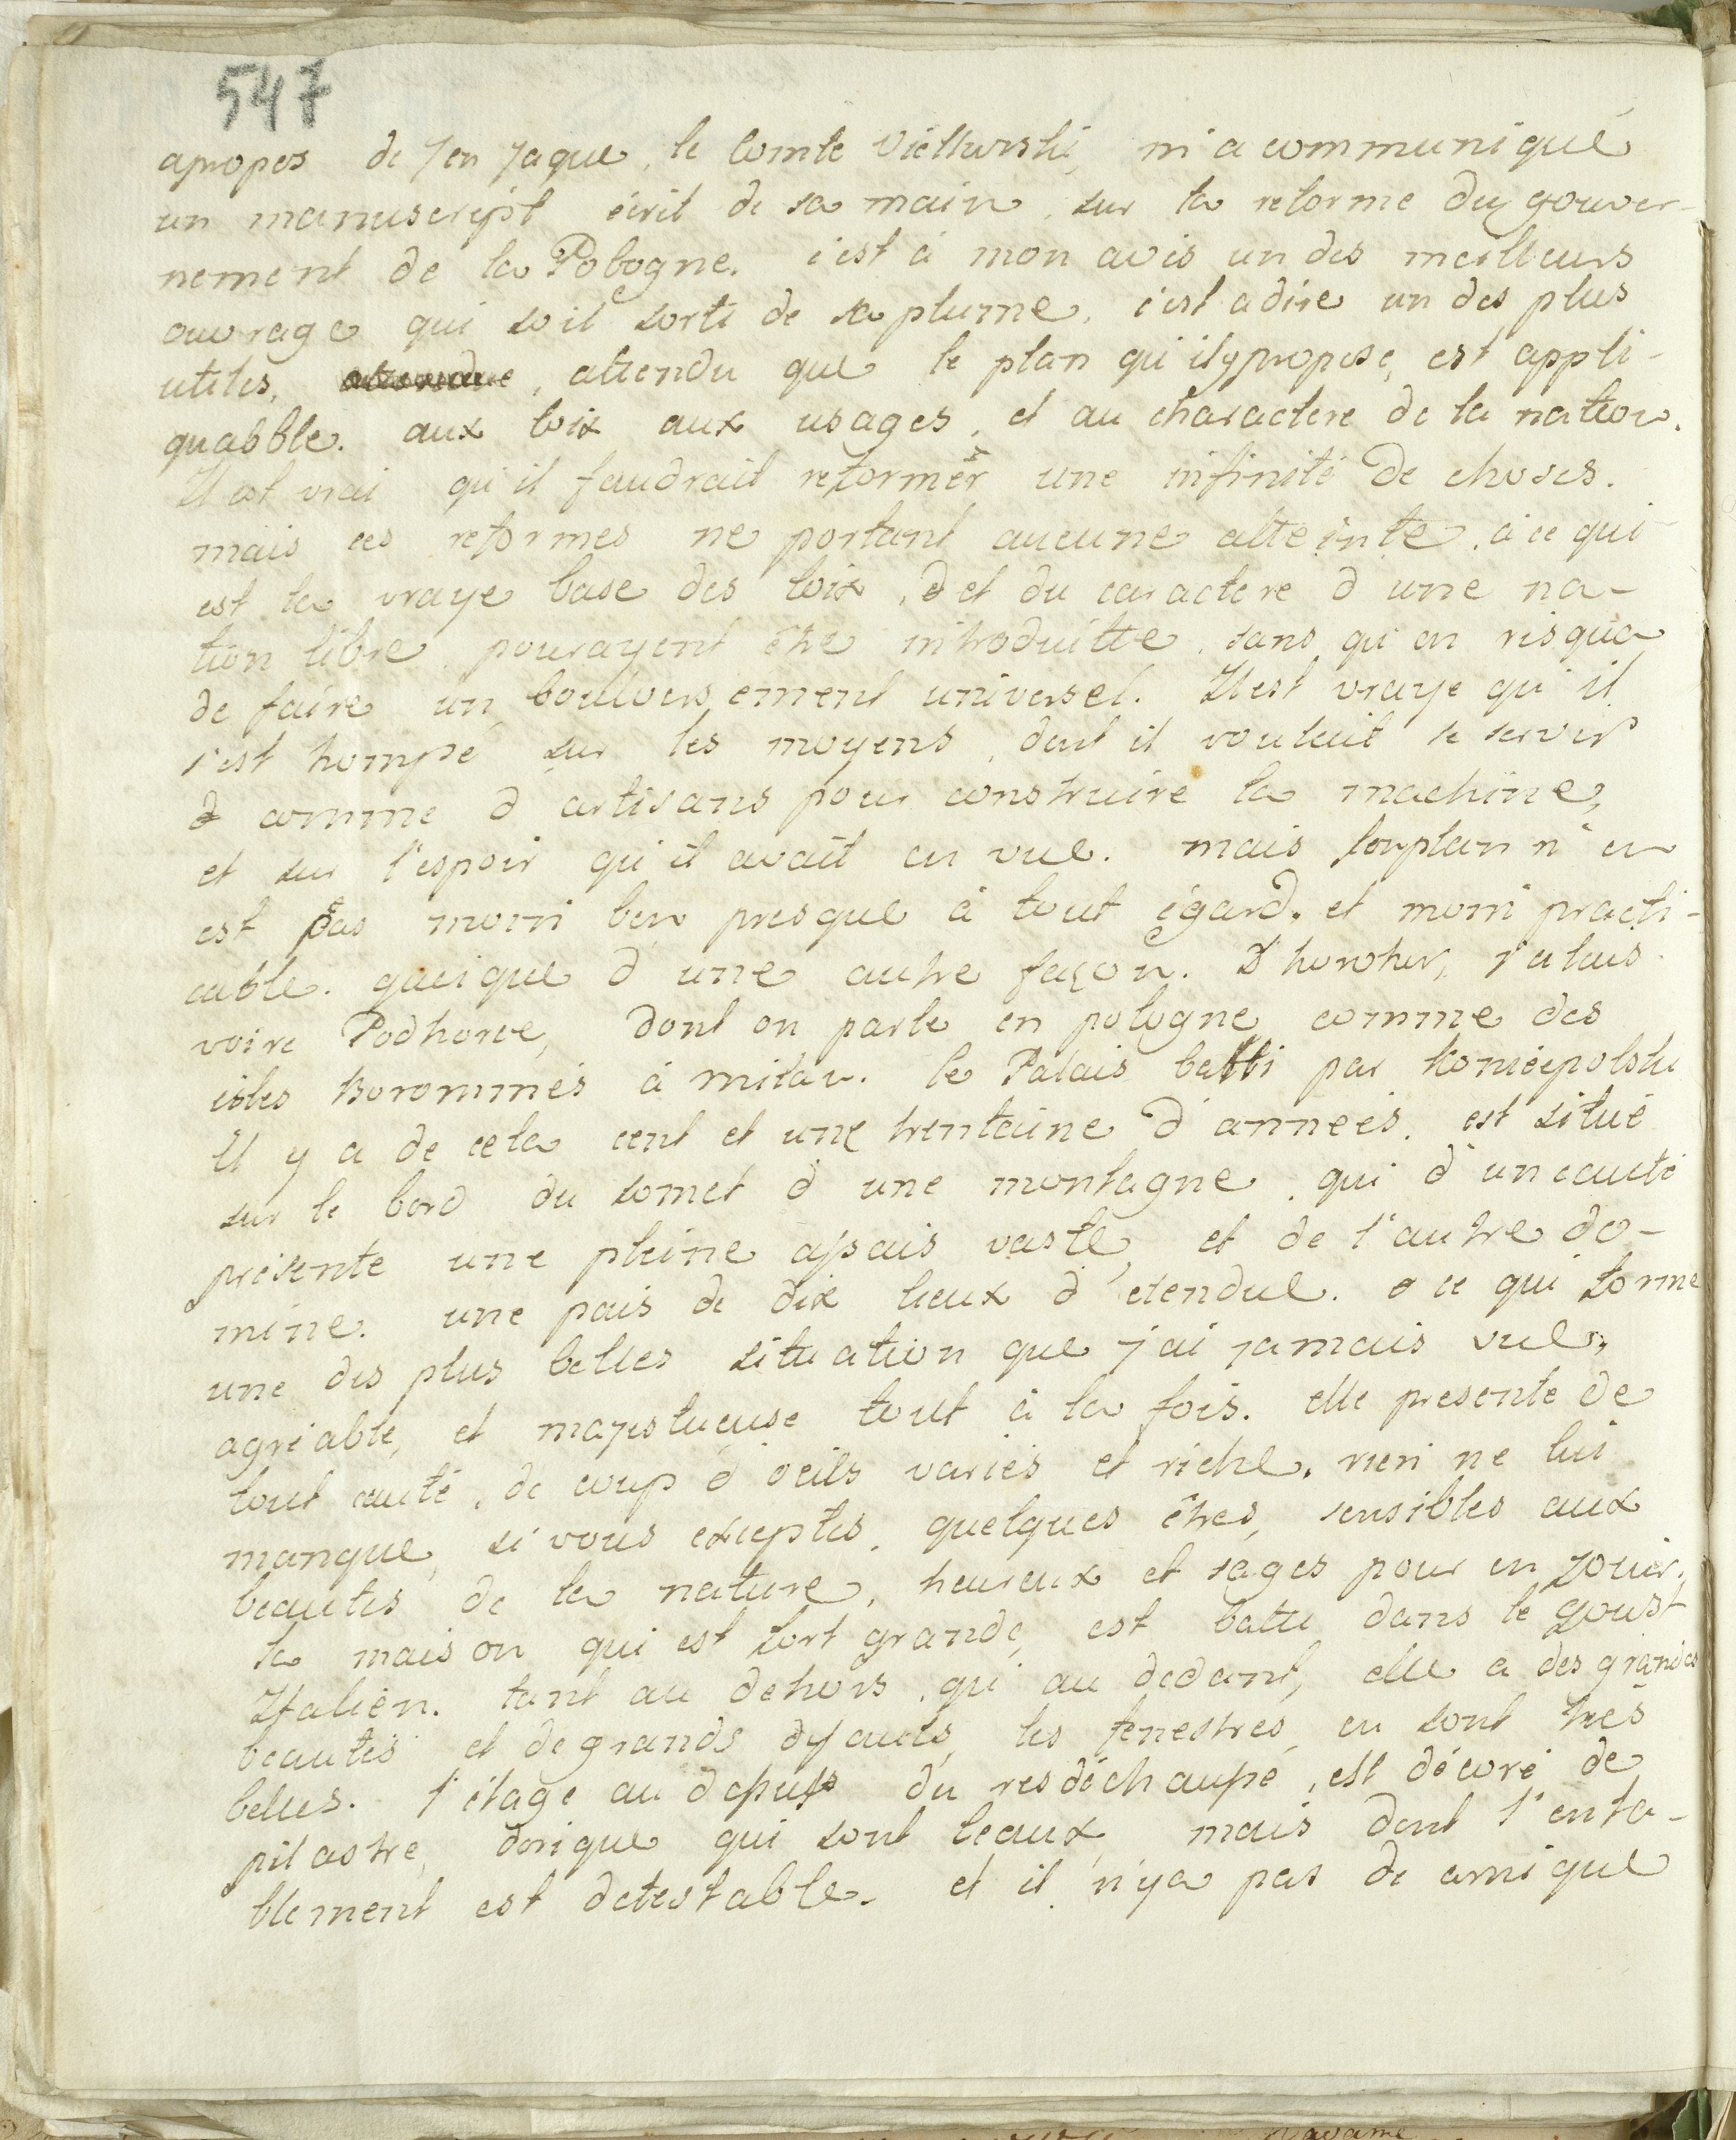 547
apropos de Jen Jaque, le Comte Viellurski, m'a communiqué
un manuscript écrit de sa main, sur la reforme du gouver-
nement de la Pologne. c'est à mon avis un des meilleurs
ouvrage qui soit sorti de sa plume, c'est a dire un des plus
utiles, attendu que le plan qu'il y propose, est appli-
quabble. aux loix aux usages, et au charactere de la nation.
Il est vrai qu'il faudrait reformer une infinité de choses.
mais ces reformes ne portant aucune atteinte, à ce qui
est la vraye base des loix, et du caractere d'une na-
tion libre, pourayent être introduitte, sans qu'on risqua
de faire un boulversement universel. Il est vraye qu'il
s'est trompé sur les moyens, dont il voulait se servir
comme d'artisans pour construire la machine,
et sur l'espoir qu'il avait en vue. mais son plan n'en
est pas moin bon presque à tout égard. et moin practi-
cable. quoique d'une autre façon. J'alais
voire Podhorce, dont on parle en pologne comme des
isles Borommés à milan. le Palais batti par Koniecpolski
Il y a de cela cent et une trentaine d'années. est situé
sur le bord du somet d'une montagne, qui d'un cauté
présente une pleine assais vaste, et de l'autre do-
mine. une pais de dix lieux d'etendue. ce qui forme
une des plus belles situation que j'ai jamais vue,
agréable, et majestueuse tout à la fois. elle presente de
tout cauté, de coup d'oeils variés et riche, rien ne lui
manque, si vous exceptes, quelques êtres, sensibles aux
beautés de la nature, heureux et sages pour en jouir.
la maison qui est fort grande, est batti dans le goust
Italien. tant au dehors, qu'au dedant, elle a des grandes
beautés et de grands defauts, les fenestres en sont très
belles. l'étage au dessus du resdéchaupé, est décoré de
pilastre, dorique qui sont beaux, mais dont l'enta-
blement est detestable. et il n'ya pas de cornique